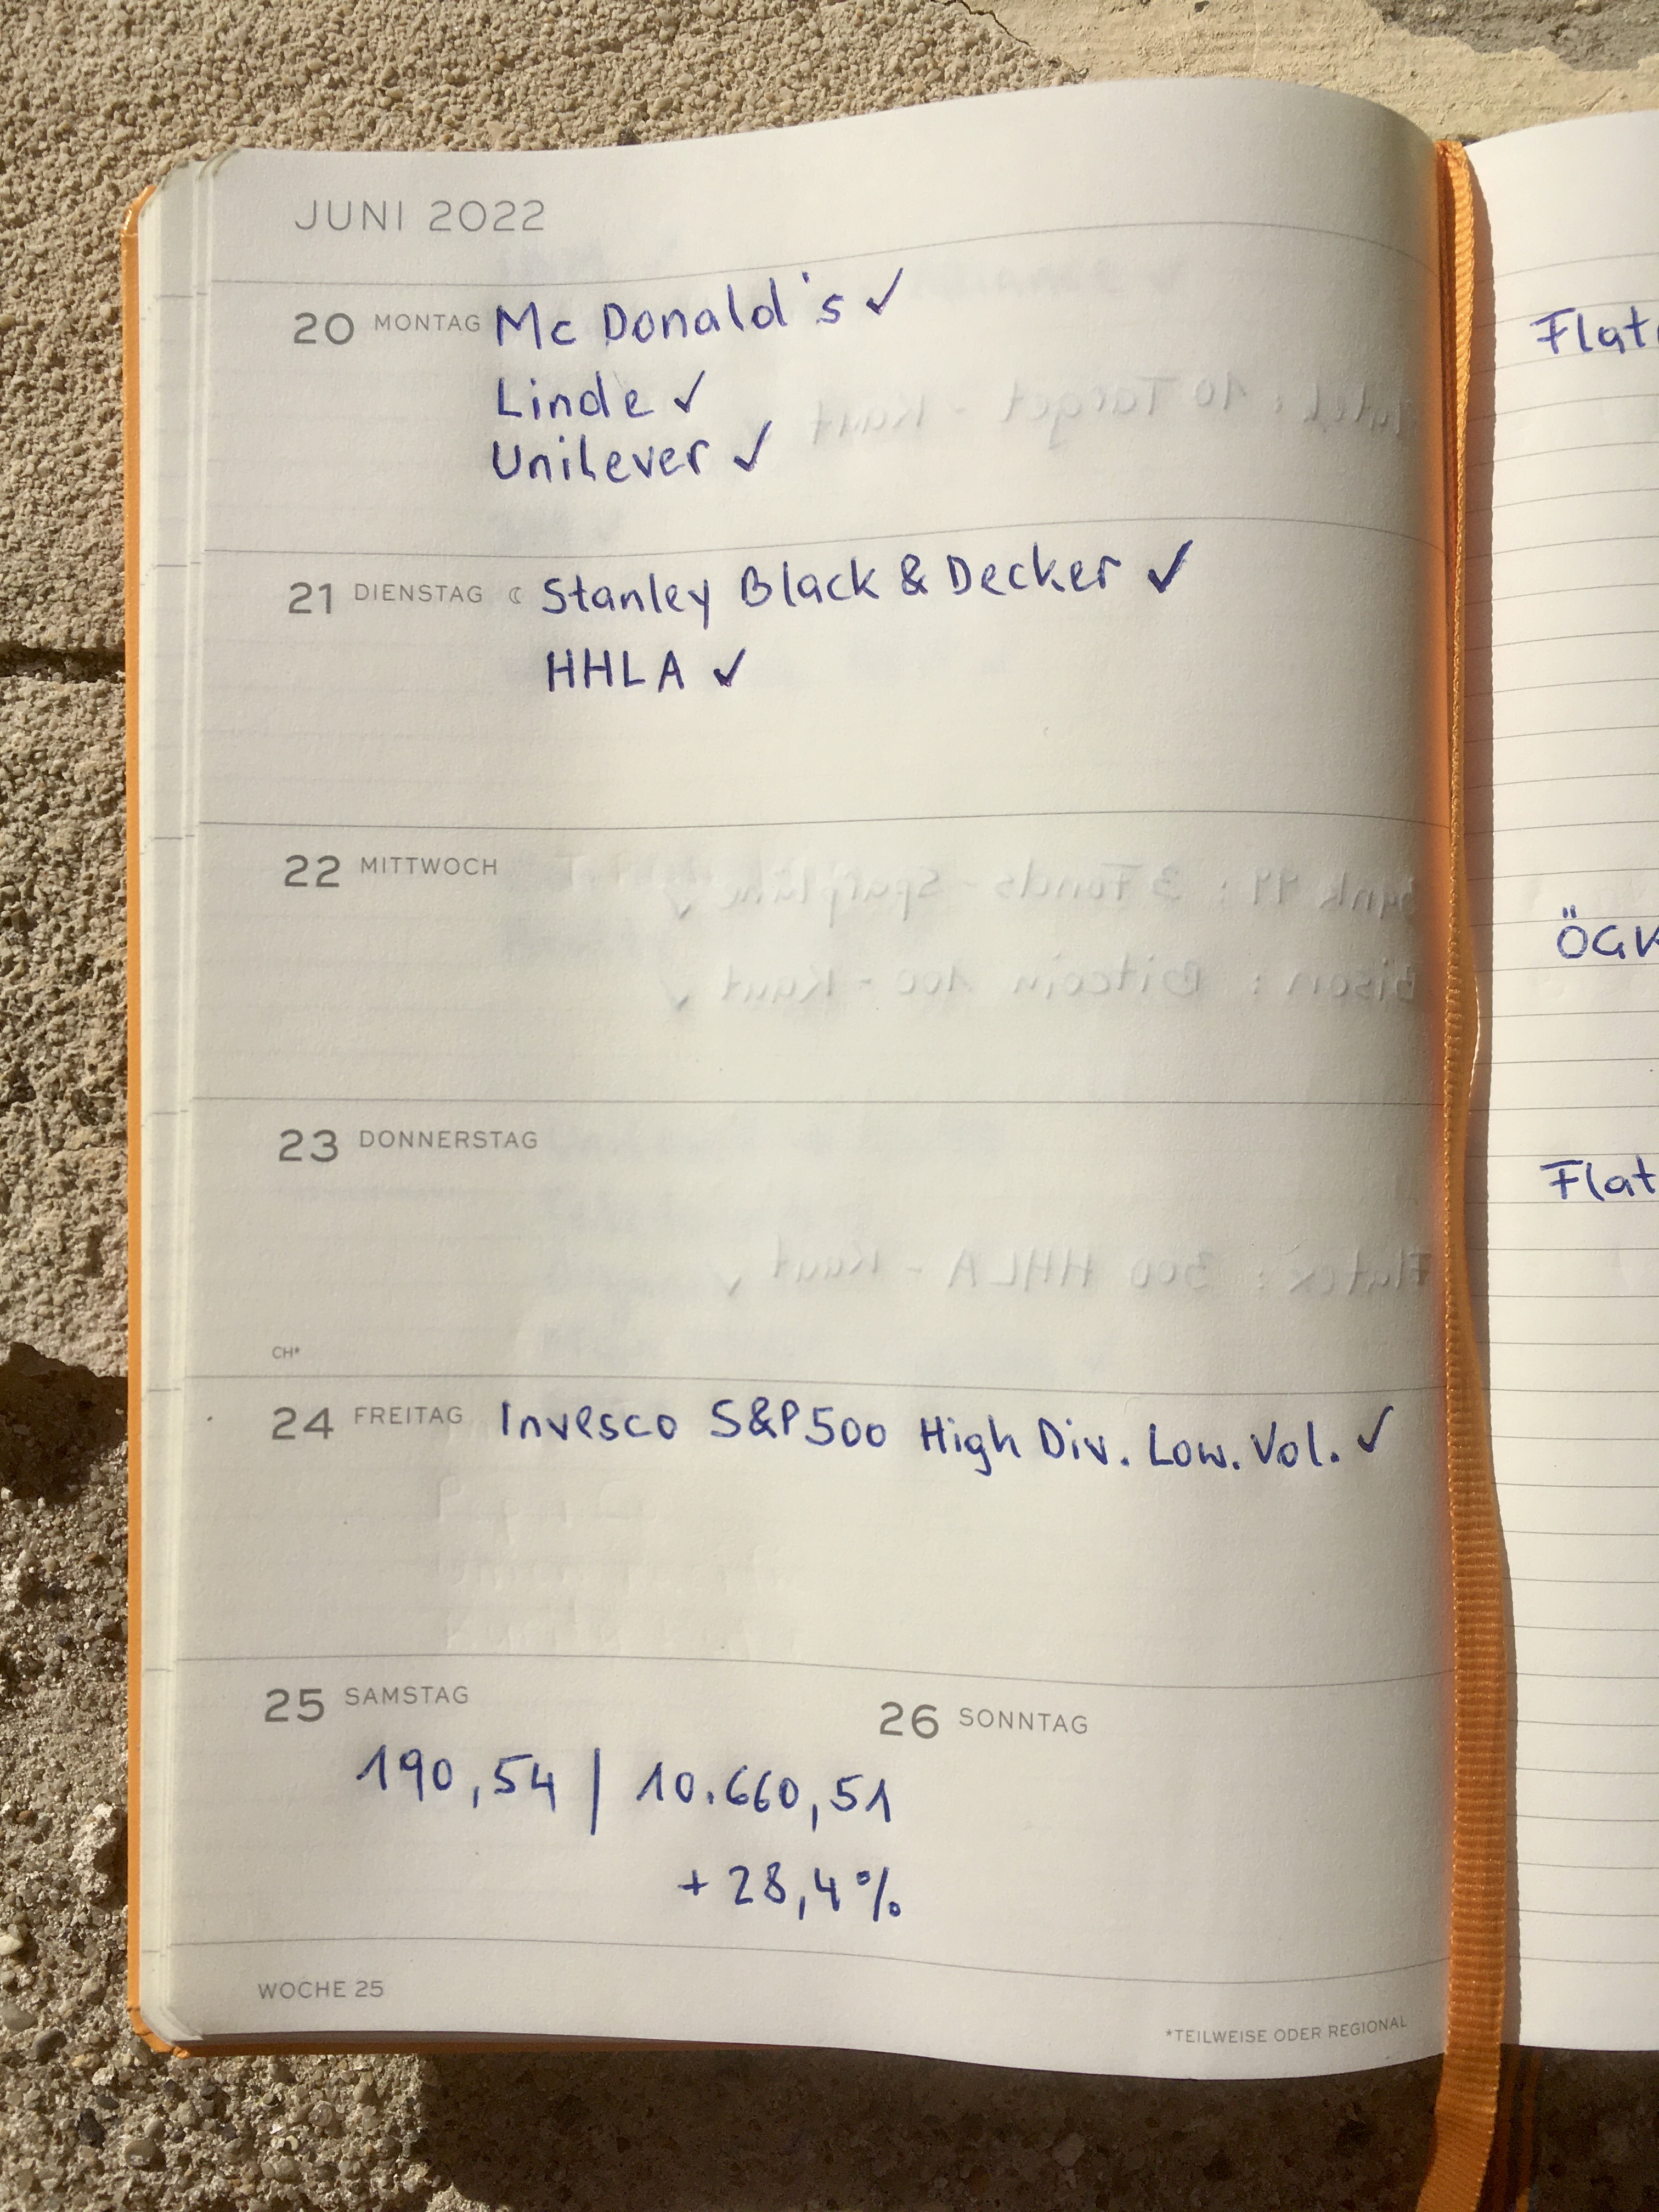 JUNI 2022
20 MONTAG Mc Donald's ✓
Linde ✓
Unilever ✓
21 DIENSTAG ☾ Stanley Black & Decker ✓
HHLA ✓
22 MITTWOCH
23 DONNERSTAG
CH*
24 FREITAG Invesco S&P500 High Div. Low. Vol. ✓
25 SAMSTAG
26 SONNTAG
190,54 | 10.660,51
+ 28,4%
WOCHE 25
*TEILWEISE ODER REGIONAL